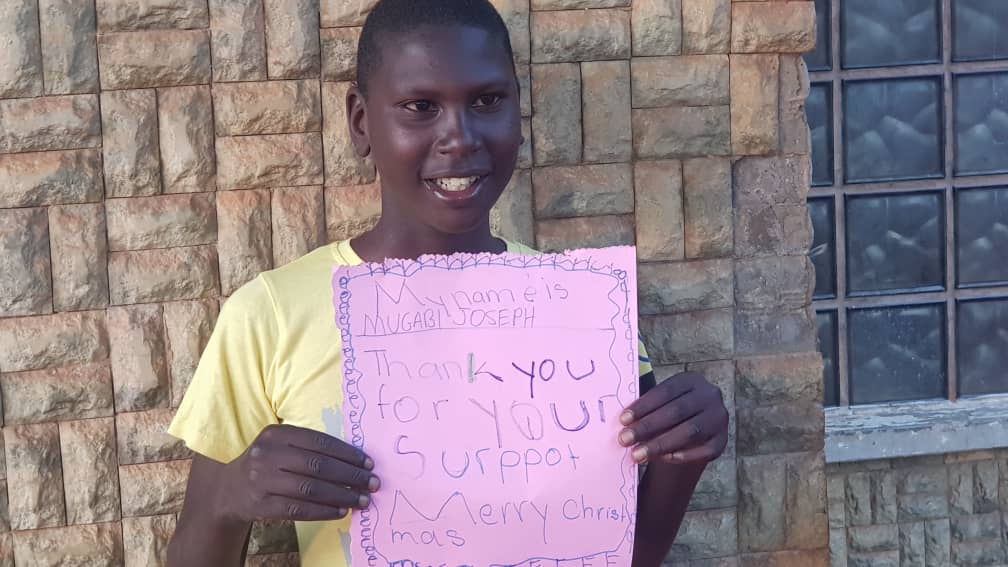 My name is
MUGABI JOSEPH
Thank you
for your
Surppot
Merry Christ
mas